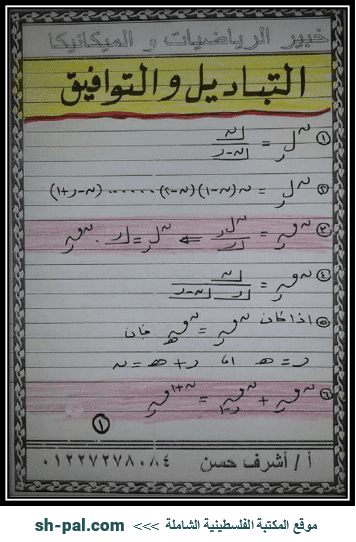 خبير الرياضيات و الميكانيكا
التباديل والتوافيق
① ⁿلر = ⌊ن / ⌊ن-ر
② ⁿلر = ن(ن-١)(ن-٢) ...... (ن-ر+١)
③ ⁿقر = ⁿلر / ⌊ر ⇐ ⁿلر = ⌊ر . ⁿقر
④ ⁿقر = ⌊ن / ⌊ر ⌊ن-ر
⑤ اذا كان ⁿقر = ⁿقه فإن
ر = ه أو ر + ه = ن
⑥ ⁿقر + ⁿقر-١ = ⁿ⁺¹قر
①
أ / أشرف حسن
٠١٢٢٧٢٧٨٠٨٤
موقع المكتبة الفلسطينية الشاملة <<< sh-pal.com